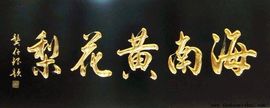 海南黄花梨